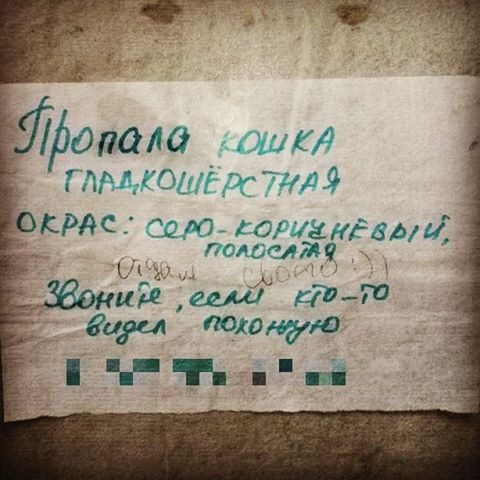 Пропала кошка
гладкошёрстная
окрас: серо-коричневый,
полосатая
отдам свою :))
Звоните, если кто-то
видел похожую